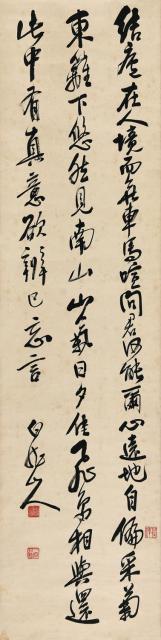 結廬在人境而無車馬喧問君何能爾心遠地自偏采菊
東籬下悠然見南山山氣日夕佳飛鳥相與還
此中有真意欲辨已忘言 白龍山人